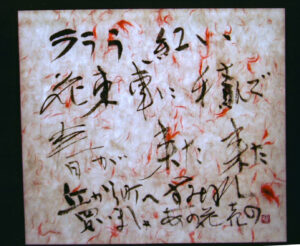 ラララ 紅い
花束 車に 積んで
春が 来た 来た
丘から 町へ すみれ
買いましょ あの花 花の